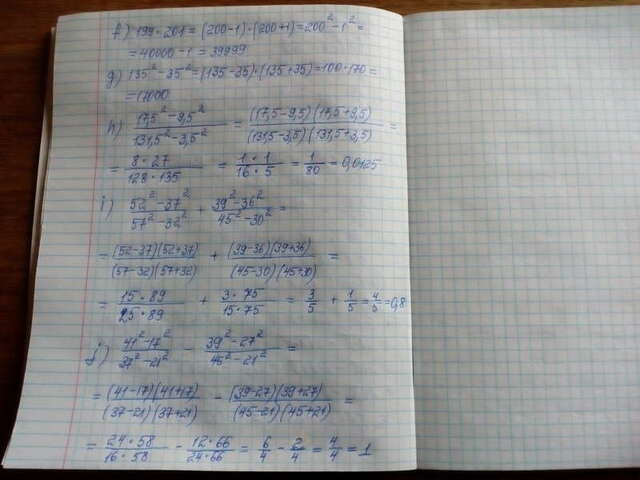 f) 199 · 201 = (200-1)·(200+1) = 200² - 1² =
= 40000 - 1 = 39999
g) 135² - 35² = (135-35)·(135+35) = 100·170 =
= 17000
h) (17,5² - 9,5²)/(131,5² - 3,5²) = ((17,5-9,5)(17,5+9,5))/((131,5-3,5)(131,5+3,5)) =
= (8·27)/(128·135) = (1·1)/(16·5) = 1/80 = 0,0125
i) (52² - 37²)/(57² - 32²) + (39² - 36²)/(45² - 30²) =
= ((52-37)(52+37))/((57-32)(57+32)) + ((39-36)(39+36))/((45-30)(45+30)) =
= (15·89)/(25·89) + (3·75)/(15·75) = 3/5 + 1/5 = 4/5 = 0,8
j) (41² - 17²)/(37² - 21²) - (39² - 27²)/(45² - 21²) =
= ((41-17)(41+17))/((37-21)(37+21)) - ((39-27)(39+27))/((45-21)(45+21)) =
= (24·58)/(16·58) - (12·66)/(24·66) = 6/4 - 2/4 = 4/4 = 1